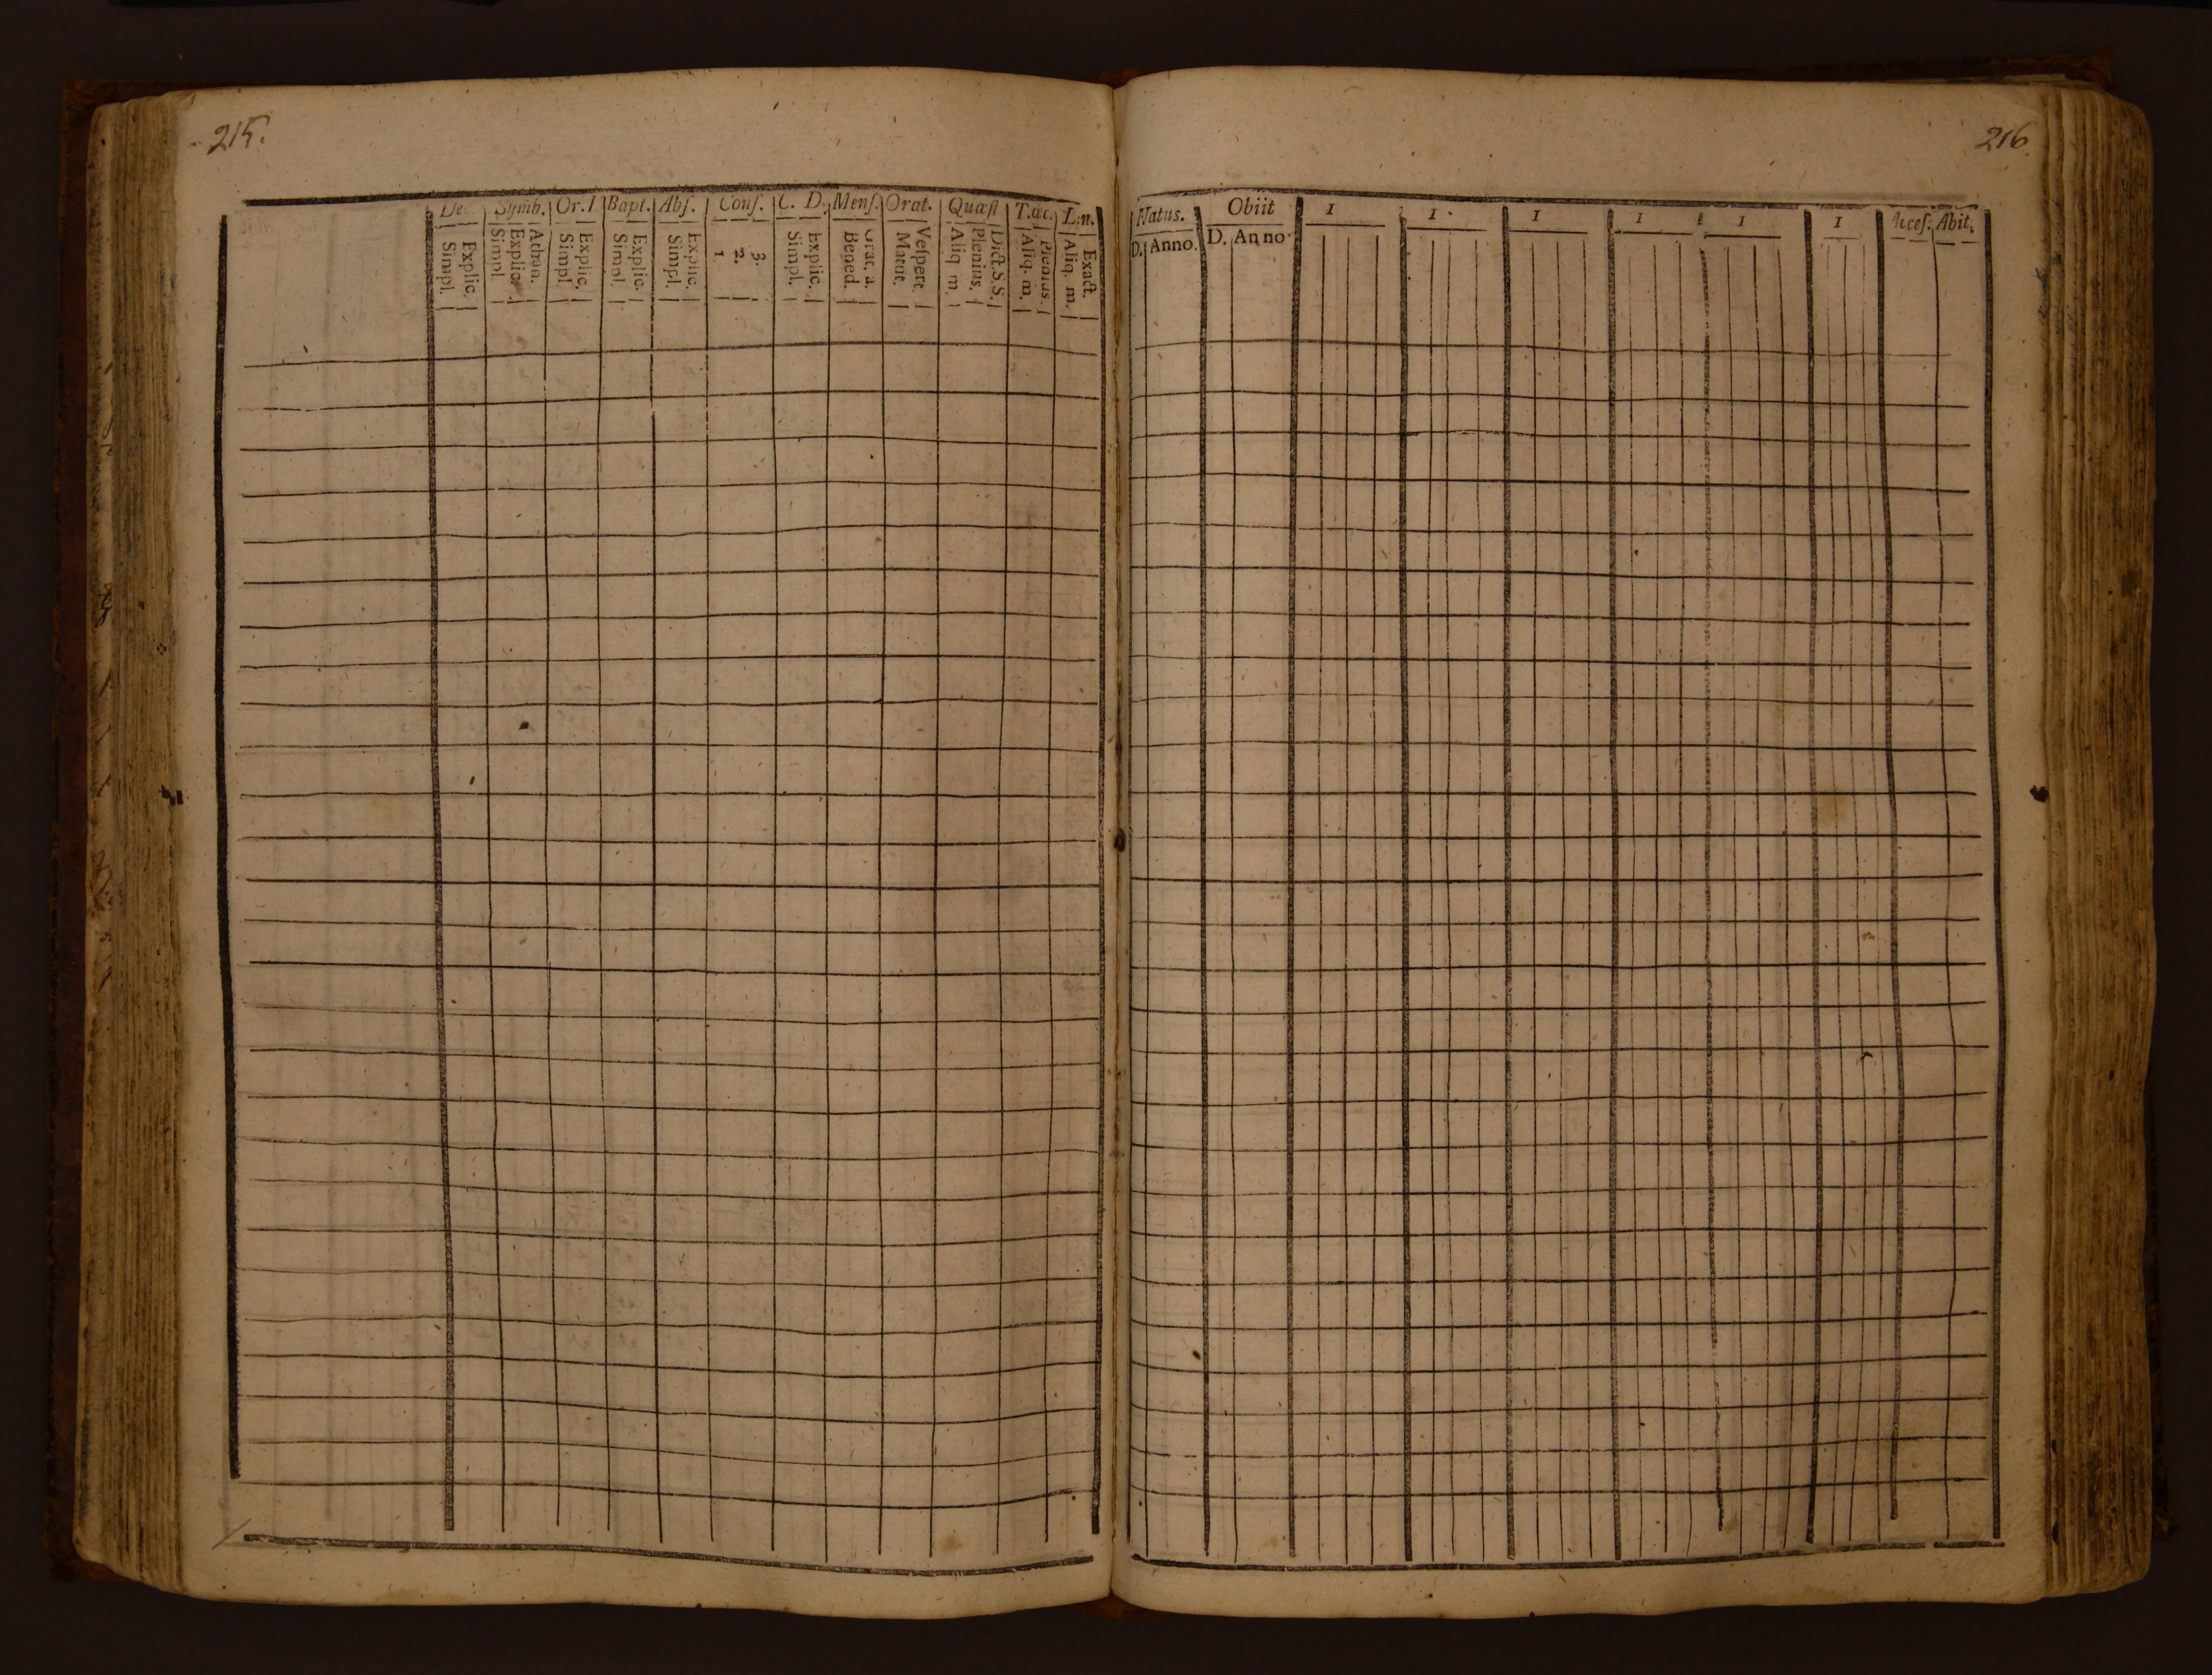 215.
Dec. Symb. Or.D Bapt. Abſ. Conf. C. D. Menſ. Orat. Quæſt T.œc. Lin.
Simpl. Explic. Simpl. Explic. Athan. Simpl. Explic. Simpl. Explic. Simpl. Explic. 1. 2. 3. Simpl. Explic. Bened. Grat. a. Matut. Veſpert. Aliq m. Plenius. Dict.S.S. Aliq. m. Plenius. Aliq. m. Exact.
216.
Natus. Obiit 1 1. 1 1 1 1 Acceſ. Abit.
D. Anno. D. Anno